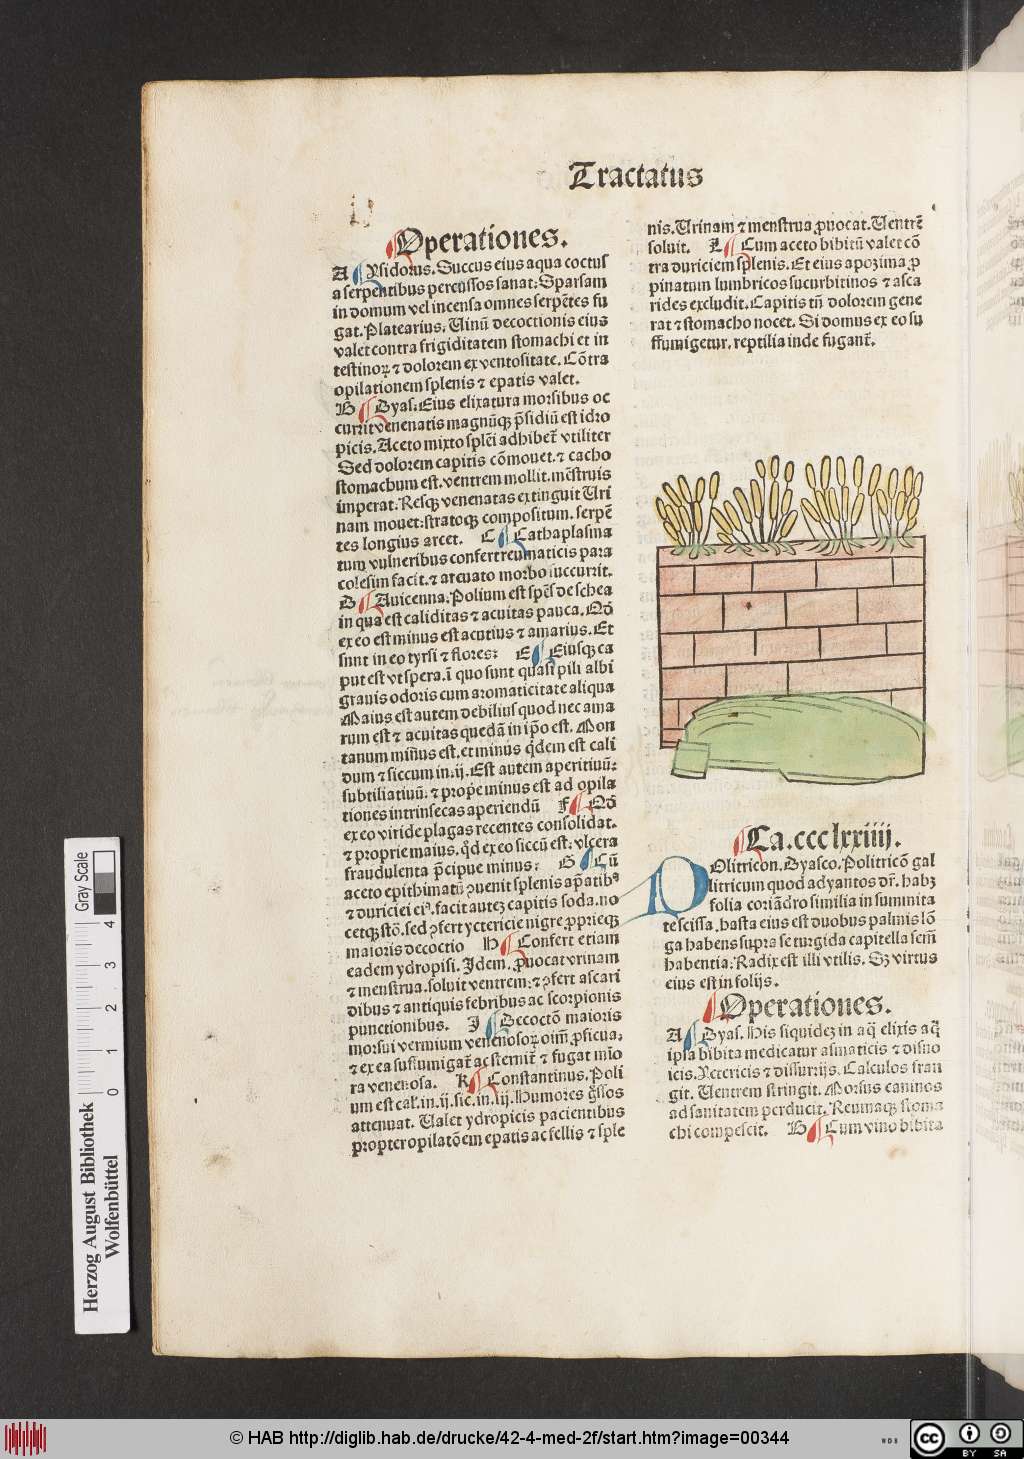 Tractatus
Operationes.
A Ysidorus. Succus eius aqua coctus
a serpentibus percussos sanat: Sparsam
in domum vel incensa omnes serpētes fu
gat. Platearius: Uinū decoctionis eiuꝰ
valet contra frigiditatem stomachi et in
testinoꝝ ⁊ dolorem ex ventositate. Cōtra
opilationem splenis ⁊ epatis valet.
B Dyas: Eius elixatura morsibus oc
currit venenatis magnūqꝫ p̄sidiū est idro
picis. Aceto mixto splēi adhibet᷑ vtiliter
Sed dolorem capitis cōmouet. ⁊ cacho
stomachum est. ventrem mollit. mēstruis
imperat. Resqꝫ venenatas extinguit Uri
nam mouet: stratoqꝫ compositum. serpē
tes longius arcet. C Cathaplasma
tum vulneribus confert reumaticis para
colesim facit. ⁊ arcuato morbo succurrit.
D Auicenna: Polium est spēs de schea
in qua est caliditas ⁊ acuitas pauca. Nō
ex eo est minus est acutius ⁊ amarius. Et
sunt in eo tyrsi ⁊ flores: E Eiusqꝫ ca
put est vt spera. ī quo sunt quasi pili albi
grauis odoris cum aromaticitate aliqua
Maius est autem debilius quod nec ama
rum est ⁊ acuitas quedā in ip̄o est. Mon
tanum min᷑us est. et minus q̇dem est cali
dum ⁊ siccum in. ij. Est autem aperitiuū:
subtiliatiuū. ⁊ prope minus est ad opila
tiones intrinsecas aperiendū F Nō
ex eo viride plagas recentes consolidat.
⁊ proprie maius. qd̓ ex eo siccū est: vlcera
fraudulenta p̄cipue minus: G Cū
aceto epithimatū ꝯuenit splenis ap̄atibꝰ
⁊ duriciei eiꝰ. facit autez capitis soda. no
cetqꝫ stō. sed ꝯfert yctericie nigre ꝓprieqꝫ
maioris decoctio H Confert etiam
eadem ydropisi. Idem. ꝓuocat vrinam
⁊ menstrua. soluit ventrem: ⁊ ꝯfert ascari
dibus ⁊ antiquis febribus ac scorpionis
punctionibus. I Decoctō maioris
morsui vermium venenosoꝝ oīm ꝓficua:
⁊ ex ea suffumigat᷑ ac sternit᷑ ⁊ fugat mīo
ra venenosa. K Constantinus. Poli
um est cal̓. in. ij. sic. in. iij. Humores g̓ssos
attenuat. Ualet ydropicis pacientibus
propter opilatōem epatis ac fellis ⁊ sple
nis. Urinam ⁊ menstrua ꝓuocat. Uentrē
soluit. L Cum aceto bibitū valet cō
tra duriciem splenis. Et eius apozima ꝓ
pinatum lumbricos sucurbitinos ⁊ asca
rides excludit. Capitis tn̄ dolorem gene
rat ⁊ stomacho nocet. Si domus ex eo su
ffumigetur. reptilia inde fugant᷑.
Ca. ccclxxiiij.
POlitricon. Dyasco. Politricō gal
litricum quod adyantos dr̄. habꝫ
folia coriādro similia in summita
te scissa. hasta eius est duobus palmis lō
ga habens supra se turgida capitella sem̄
habentia: Radix est illi vtilis. Sꝫ virtus
eius est in folijs.
Operationes.
A Dyas. His siquidez in aq̄ elixis aq̄
ipsa bibita medicatur asmaticis ⁊ disno
icis. Yctericis ⁊ dissurijs. Calculos fran
git. Uentrem stringit. Morsus caninos
ad sanitatem perducit. Reumaqꝫ stoma
chi compescit. B Cum vino bibita
Herzog August Bibliothek
Wolfenbüttel
0 1 2 3 4
Gray Scale
© HAB http://diglib.hab.de/drucke/42-4-med-2f/start.htm?image=00344
WDB
cc BY SA